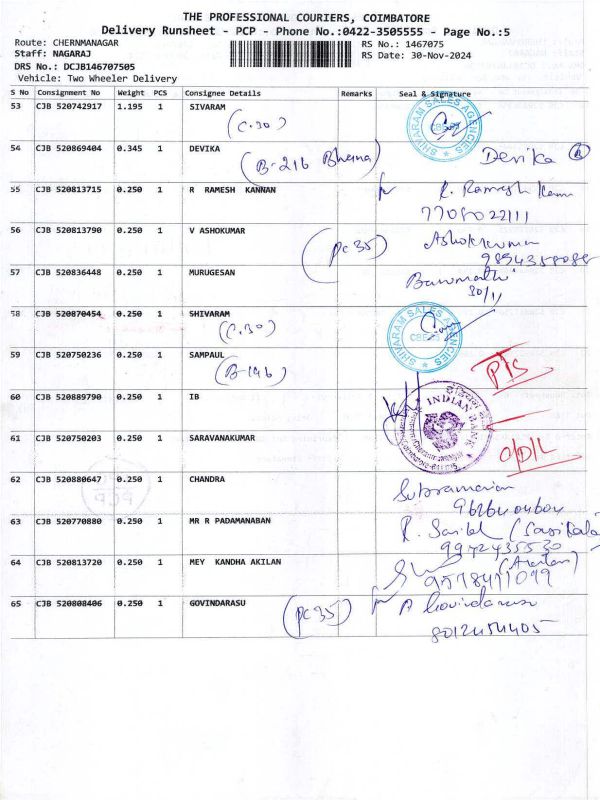 THE PROFESSIONAL COURIERS, COIMBATORE
Delivery Runsheet - PCP - Phone No.:0422-3505555 - Page No.:5
Route: CHERNMANAGAR RS No.: 1467075
Staff: NAGARAJ RS Date: 30-Nov-2024
DRS No.: DCJB146707505
Vehicle: Two Wheeler Delivery
S No Consignment No Weight PCS Consignee Details Remarks Seal & Signature
53 CJB 520742917 1.195 1 SIVARAM
(C.30)
SHIVARAM SALES AGENCIES
54 CJB 520869404 0.345 1 DEVIKA
(B-216 Bhema) Devika
55 CJB 520813715 0.250 1 R RAMESH KANNAN
R. Ramesh
7708022111
56 CJB 520813790 0.250 1 V ASHOKUMAR
(PC 35) Ashokkumar
57 CJB 520836448 0.250 1 MURUGESAN
30/11
58 CJB 520870454 0.250 1 SHIVARAM
(C.30)
SHIVARAM SALES AGENCIES
59 CJB 520750236 0.250 1 SAMPAUL
(B-146)
60 CJB 520889790 0.250 1 IB
INDIAN BANK
61 CJB 520750203 0.250 1 SARAVANAKUMAR
O/D/L
62 CJB 520880647 0.250 1 CHANDRA
Subramanian
63 CJB 520770880 0.250 1 MR R PADAMANABAN
9942435530
64 CJB 520813720 0.250 1 MEY KANDHA AKILAN
(Akilan)
65 CJB 520808406 0.250 1 GOVINDARASU
(PC 35) Govindarasu